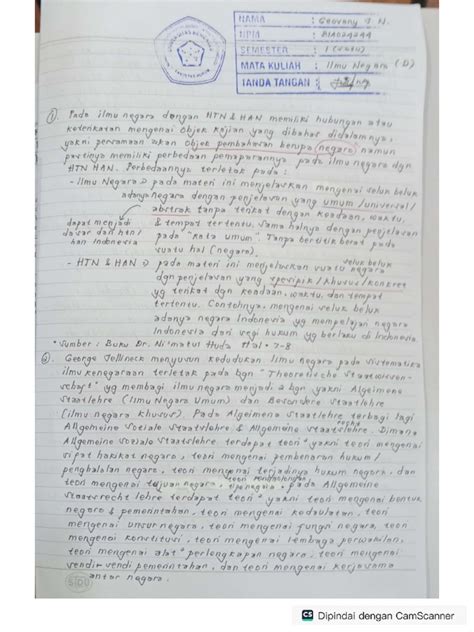 NAMA : Geovany J. N.
NPM : B1A024244
SEMESTER : 1 (satu)
MATA KULIAH : Ilmu Negara (D)
TANDA TANGAN :
FAKULTAS HUKUM
①. Pada ilmu negara dengan HTN & HAN memiliki hubungan atau
keterkaitan mengenai objek kajian yang dibahas didalamnya,
yakni persamaan akan objek pembahasan berupa negara namun
pastinya memiliki perbedaan pemaparannya pada ilmu negara dgn
HTN HAN. Perbedaannya terletak pada :
- Ilmu Negara → pada materi ini menjelaskan mengenai seluk beluk
adanya negara dengan penjelasan yang umum/universal/
abstrak tanpa terikat dengan keadaan, waktu,
& tempat tertentu. Sama halnya dengan penjelasan
dapat menjadi
dasar dari htn/
han Indonesia
pada "kata umum". Tanpa berat pada
suatu hal (negara).
- HTN & HAN → pada materi ini menjelaskan suatu negara
seluk beluk
dgn penjelasan yang spesifik/khusus/konkret
yg terikat dgn keadaan, waktu, dan tempat
tertentu. Contohnya, mengenai seluk beluk
adanya negara Indonesia yg mempelajari negara
Indonesia dari segi hukum yg berlaku di Indonesia.
*Sumber : Buku Dr. Ni'matul Huda Hal. 7-8
②. George Jellineck menyusun kedudukan ilmu negara pada sistematika
ilmu kenegaraan terletak pada bgn "Theoretische Staatswissen-
schaft" yg membagi ilmu negara menjadi 2 bgn yakni Algeimene
Staatlehre (Ilmu Negara Umum) dan Besondere Staatlehre
(ilmu negara khusus). Pada Algeimene Staatlehre terbagi lagi
Allgemeine Soziale Staatslehre & Allgemeine Staatslehre. Dimana
Allgemeine Soziale Staatslehre terdapat teori² yakni teori mengenai
sifat hakikat negara, teori mengenai pembenaran hukum/
penghalalan negara, teori mengenai terjadinya hukum negara, dan
teori mengenai tujuan negara, tipe negara, pada Allgemeine
Staatsrecht lehre terdapat teori² yakni teori mengenai bentuk
negara & pemerintahan, teori mengenai kedaulatan, teori
mengenai unsur negara, teori mengenai fungsi negara, teori
mengenai konstitusi, teori mengenai lembaga perwakilan,
teori mengenai alat² perlengkapan negara, teori mengenai
sendi-sendi pemerintahan, dan teori mengenai kerjasama
antar negara.
CS Dipindai dengan CamScanner